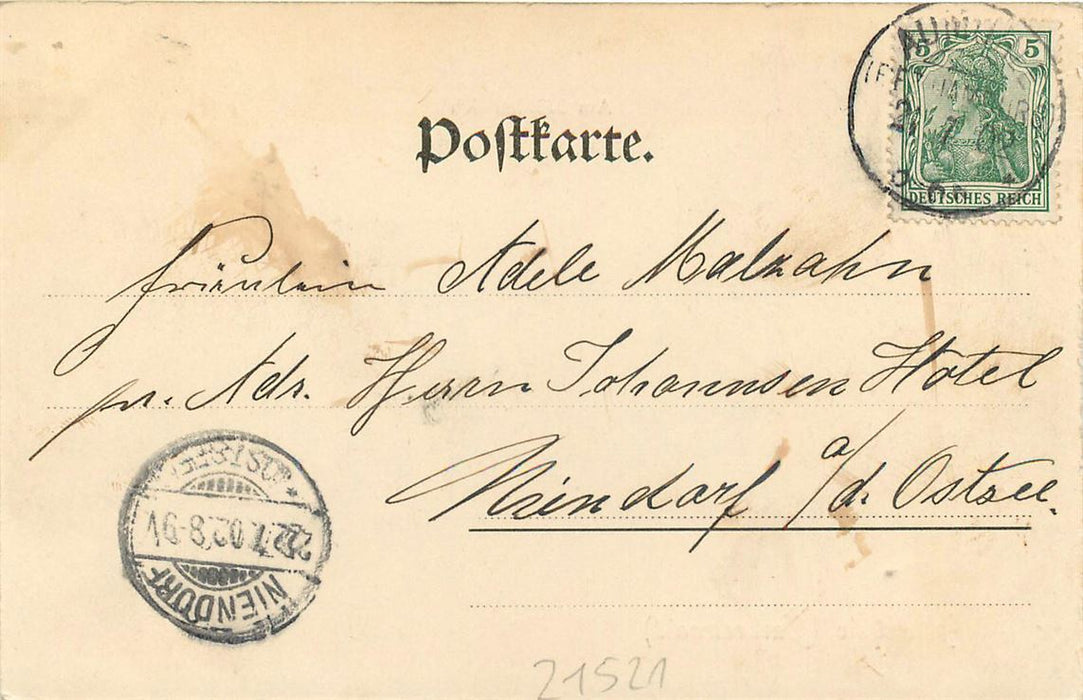 Postkarte.
5 5
DEUTSCHES REICH
Fräulein Adele Malzahn
pr. Adr. Herrn Johannsen Hotel
Niendorf a/d. Ostsee.
NIENDORF
22.7.02. 8-9V
(OSTSEE)
21521